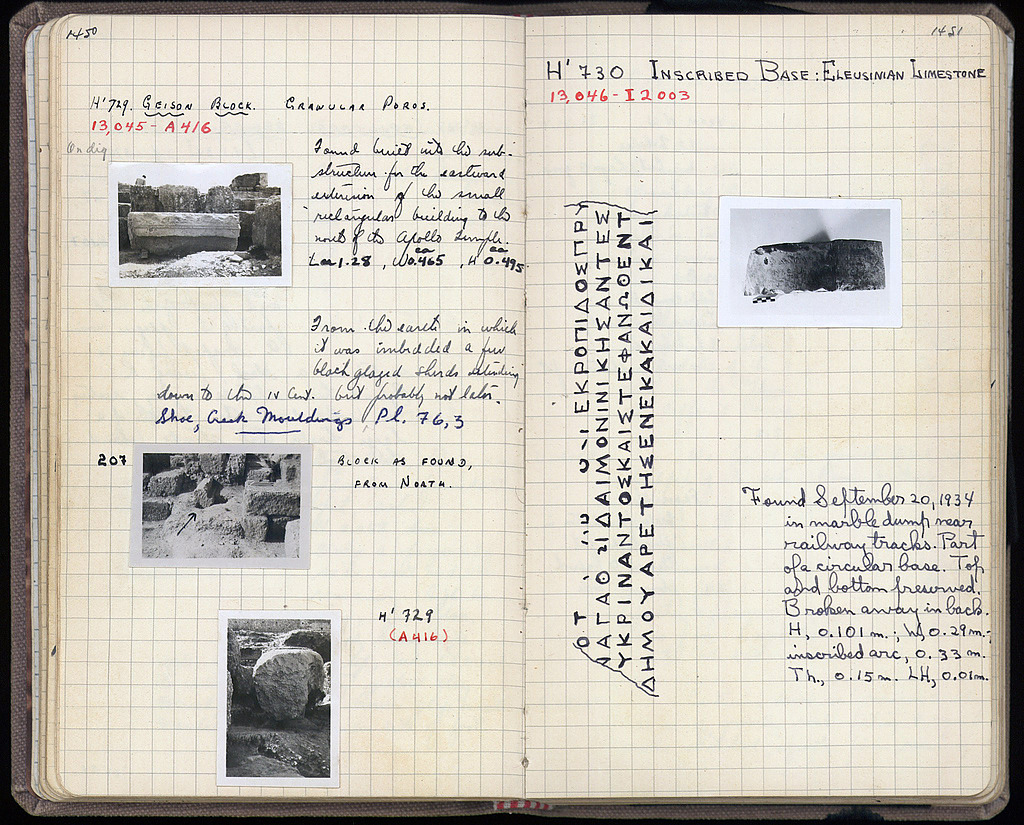 1450
H' 729. GEISON BLOCK. GRANULAR POROS.
13,045 - A 416
On dig
Found built into the sub-
structure for the eastward
extension of the small
rectangular building to the
north of the Apollo temple.
ca ca
L ca 1.28, W 0.465, H 0.495
From the earth in which
it was imbedded a few
black glazed sherds extending
down to the IV Cent. but probably not later.
Shoe, Greek Mouldings, Pl. 76,3
207
BLOCK AS FOUND,
FROM NORTH.
H' 729
(A 416)
1451
H' 730 INSCRIBED BASE: ELEUSINIAN LIMESTONE
13,046 - I 2003
ΕΚΡΟΠΙΔΟΣΠΡΥ
ΔΑΙΜΟΝΙΝΙΚΗΣΑΝΤΕΣ
ΥΚΡΙΝΑΝΤΟΣΚΑΙΣΤΕΦΑΝΩΘΕΝΤ
ΔΗΜΟΥΑΡΕΤΗΣΕΝΕΚΑΚΑΙΔΙΚΑΙ
Found September 20, 1934
in marble dump near
railway tracks. Part
of a circular base. Top
and bottom preserved.
Broken away in back.
H, 0.101 m.; W, 0.29 m.;
inscribed arc, 0.33 m.
Th., 0.15 m. LH, 0.01 m.